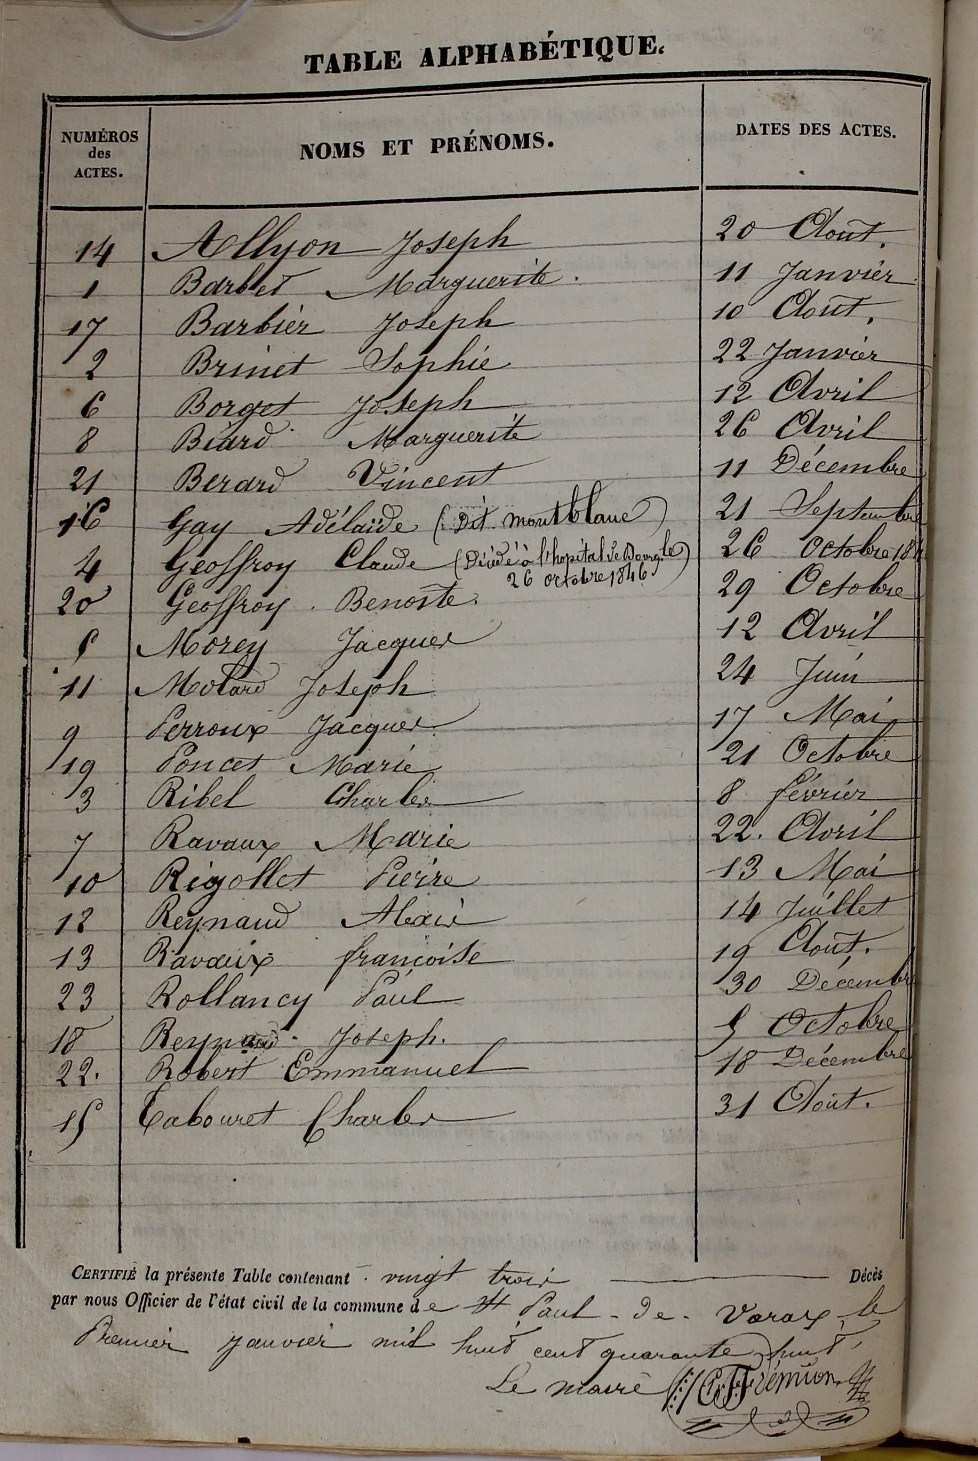 TABLE ALPHABÉTIQUE.
NUMÉROS des ACTES. NOMS ET PRÉNOMS. DATES DES ACTES.
14 Allyon Joseph 20 Août.
1 Barbet Marguerite. 11 Janvier
17 Barbier Joseph 10 Août.
2 Brinet Sophie 22 Janvier
6 Borget Joseph 12 Avril
8 Béard Marguerite 26 Avril
21 Berard Vincent 11 Décembre
16 Gay Adélaïde (Dit montblanc) 21 Septembre
4 Geoffroy Claude (Décédé à l'hopital de 26 Octobre
26 octobre 1846)
20 Geoffroy Benoîte 29 Octobre
5 Morey Jacques 12 Avril
11 Molard Joseph 24 Juin
9 Perroux Jacques 17 Mai
19 Poncet Marie 21 Octobre
3 Ribel Charles 8 février
7 Ravaux Marie 22. Avril
10 Rigollet Pierre 13 Mai
12 Reynaud Alexis 14 Juillet
13 Ravaux françoise 19 Août.
23 Rollancy Paul 30 Décembre
18 Reynaud Joseph. 5 Octobre
22. Robert Emmanuel 18 Décembre
15 Tabouret Charles 31 Août.
CERTIFIÉ la présente Table contenant vingt trois Décès
par nous Officier de l'état civil de la commune de St Paul-de-Varax, le
Premier janvier mil huit cent quarante huit,
Le maire